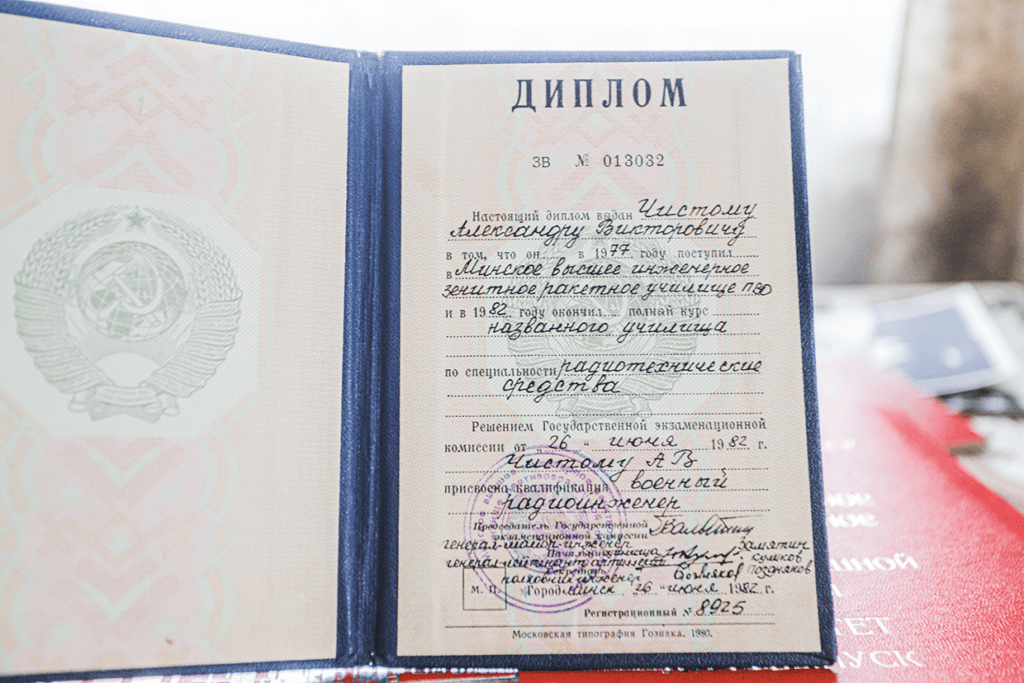 ДИПЛОМ
ЗВ № 013032
Настоящий диплом выдан Чистому
Александру Викторовичу
в том, что он в 1977 году поступил
в Минское высшее инженерное
зенитное ракетное училище ПВО
и в 1982 году окончил полный курс
названного училища
по специальности радиотехнические
средства
Решением Государственной экзаменационной
комиссии от "26" июня 1982 г.
Чистому А В
присвоена квалификация военный
радиоинженер
Председатель Государственной
экзаменационной комиссии
генерал-майор-инженер Замятин
Начальник училища
генерал-лейтенант артиллерии Куликов
Секретарь
полковник-инженер Поздняков
М. П. Город Минск "26" июня 1982 г.
Регистрационный № 8925
Московская типография Гознака. 1980.